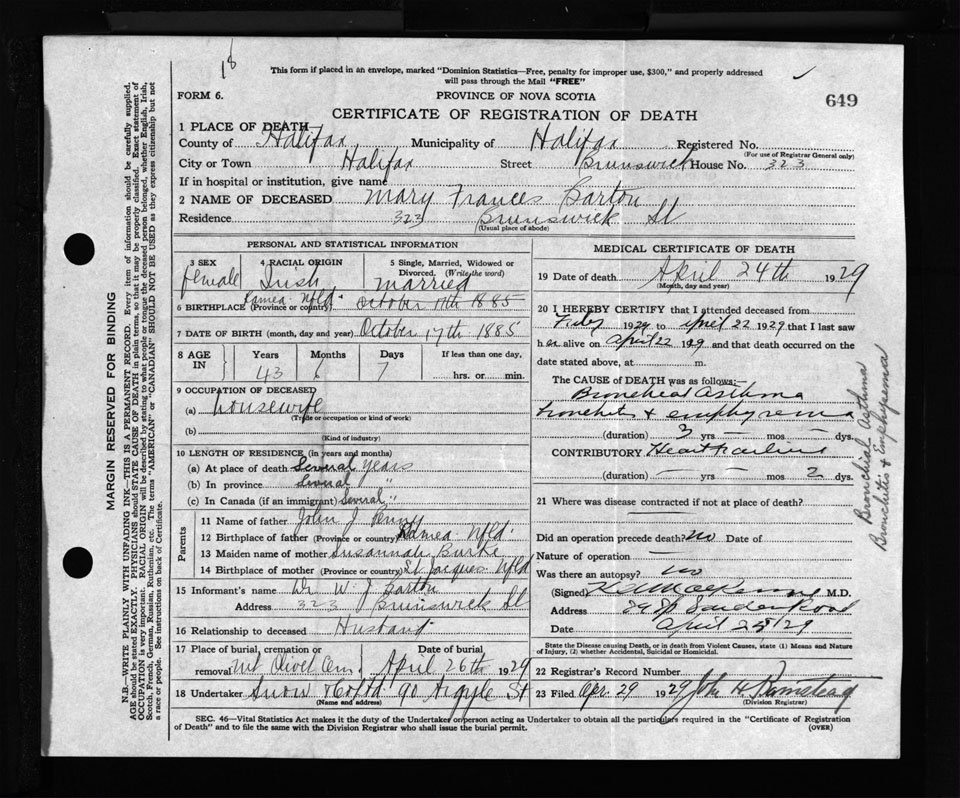 18
This form if placed in an envelope, marked "Dominion Statistics—Free, penalty for improper use, $300," and properly addressed
will pass through the Mail "FREE"
FORM 6.
PROVINCE OF NOVA SCOTIA
649
CERTIFICATE OF REGISTRATION OF DEATH
1 PLACE OF DEATH
County of Halifax Municipality of Halifax Registered No.
(For use of Registrar General only)
City or Town Halifax Street Brunswick House No. 323
If in hospital or institution, give name
2 NAME OF DECEASED Mary Frances Barton
Residence 323 Brunswick St
(Usual place of abode)
PERSONAL AND STATISTICAL INFORMATION
3 SEX 4 RACIAL ORIGIN 5 Single, Married, Widowed or
Divorced. (Write the word)
female Irish married
6 BIRTHPLACE (Province or county) Ramea Nfld October 17th 1885
7 DATE OF BIRTH (month, day and year) October 17th 1885
8 AGE IN Years Months Days If less than one day,
43 6 7 hrs. or min.
9 OCCUPATION OF DECEASED
(a) housewife
(Trade or occupation or kind of work)
(b)
(Kind of industry)
10 LENGTH OF RESIDENCE (in years and months)
(a) At place of death Several years
(b) In province Several "
(c) In Canada (if an immigrant) Several "
Parents
11 Name of father John J Penny
12 Birthplace of father (Province or country) Ramea Nfld.
13 Maiden name of mother Susannah Burke
14 Birthplace of mother (Province or country) St Jacques Nfld
15 Informant's name Dr W J Barton
Address 323 Brunswick St
16 Relationship to deceased Husband
17 Place of burial, cremation or removal Mt Olivet Cem. Date of burial April 26th 1929
18 Undertaker Snow & Co Ltd 90 Argyle St
(Name and address)
MEDICAL CERTIFICATE OF DEATH
19 Date of death April 24th 1929
(Month, day and year)
20 I HEREBY CERTIFY that I attended deceased from
Feby 1929 to April 22 1929 that I last saw
her alive on April 22 1929 and that death occurred on the
date stated above, at m.
The CAUSE OF DEATH was as follows:
Bronchial Asthma
Bronchitis & emphysema
(duration) 3 yrs — mos — dys.
CONTRIBUTORY Heart failure
(duration) — yrs — mos 2 dys.
21 Where was disease contracted if not at place of death?
Did an operation precede death? no Date of
Nature of operation —
Was there an autopsy? no
(Signed) M.D.
Address
Date April 25/29
State the Disease causing Death, or in death from Violent Causes, state (1) Means and
Nature of Injury, (2) whether Accidental, Suicidal or Homicidal.
22 Registrar's Record Number
23 Filed Apr. 29 1929 John H
(Division Registrar)
Bronchial Asthma
Bronchitis & Emphysema
SEC. 46—Vital Statistics Act makes it the duty of the Undertaker or person acting as Undertaker to obtain all the particulars required in the "Certificate of Registration
of Death" and to file the same with the Division Registrar who shall issue the burial permit.
(OVER)
MARGIN RESERVED FOR BINDING
N.B.—WRITE PLAINLY WITH UNFADING INK—THIS IS A PERMANENT RECORD. Every item of information should be carefully supplied.
AGE should be stated EXACTLY. PHYSICIANS should STATE CAUSE OF DEATH in plain terms, so that it may be properly classified. Exact statement of
OCCUPATION is very important. RACIAL ORIGIN will be described by stating to what people or tongue the deceased person belonged, whether English, Irish,
Scotch, French, German, Russian, Ruthenian, etc. The terms "AMERICAN" or "CANADIAN" SHOULD NOT BE USED as they express citizenship but not
a race or people. See instructions on back of Certificate.